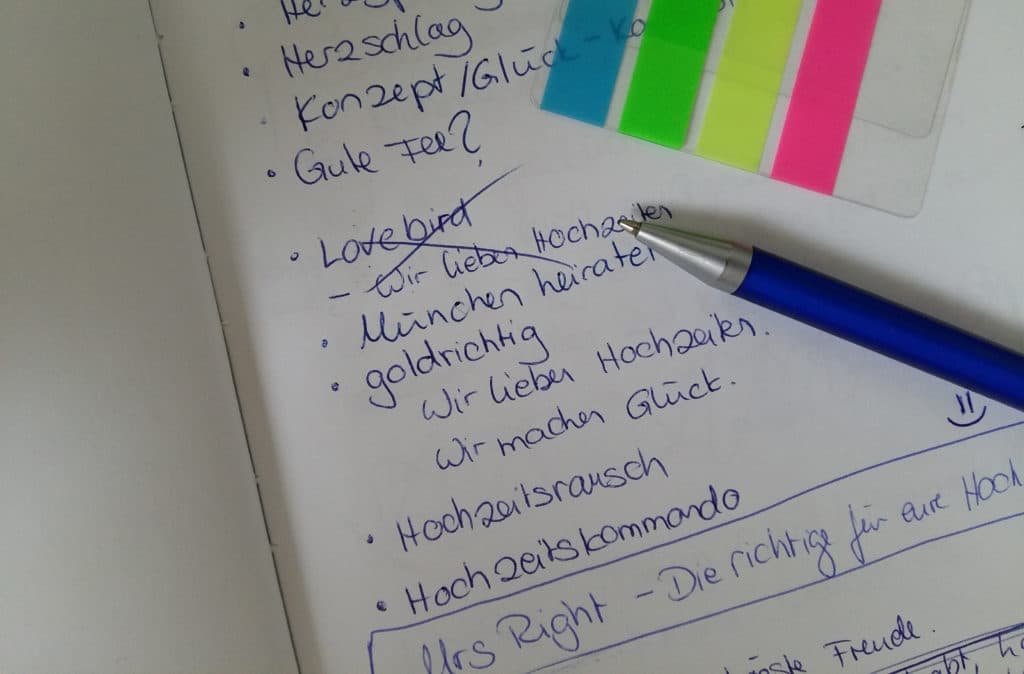 Herzschlag
Konzept/Glück-Ko
Gute Fee?
Lovebird
- Wir lieben Hochzeiten
München heiraten
goldrichtig
Wir lieben Hochzeiten.
Wir machen Glück.
Hochzeitsrausch
Hochzeitskommando
Mrs Right - Die richtige für eure Hoch
Freude.